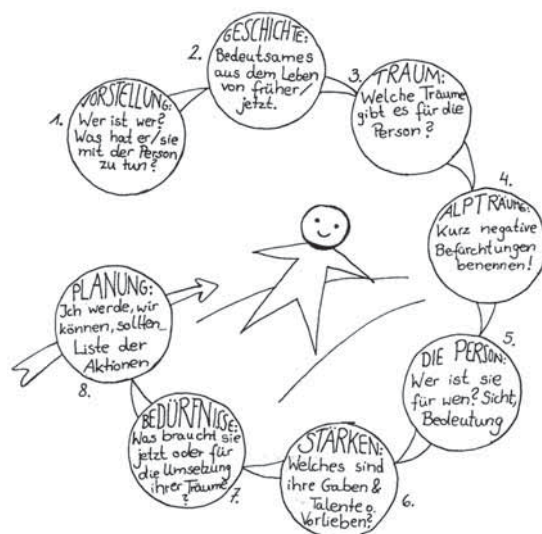 1.
VORSTELLUNG:
Wer ist wer?
Was hat er/sie
mit der Person
zu tun?
2.
GESCHICHTE:
Bedeutsames
aus dem Leben
von früher/
jetzt.
3.
TRAUM:
Welche Träume
gibt es für die
Person?
4.
ALPTRÄUME:
Kurz negative
Befürchtungen
benennen!
5.
DIE PERSON:
Wer ist sie
für wen? Sicht,
Bedeutung
6.
STÄRKEN:
Welches sind
ihre Gaben &
Talente o.
Vorlieben?
7.
BEDÜRFNISSE:
Was braucht sie
jetzt oder für
die Umsetzung
ihrer Träume
?
8.
PLANUNG:
Ich werde, wir
können, sollten_
Liste der
Aktionen